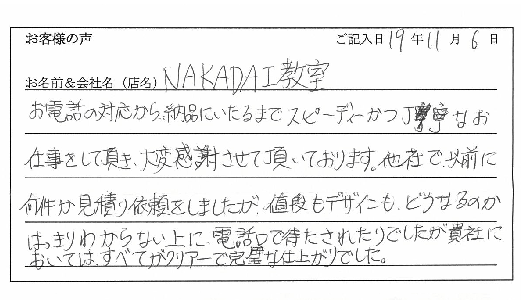 お客様の声 ご記入日 19年 11月 6日
お名前&会社名（店名） NAKADAI教室
お電話の対応から、納品にいたるまでスピーディーかつ丁寧なお
仕事をして頂き、大変感謝させて頂いております。他社で、以前に
何件か見積り依頼をしましたが、値段もデザインも、どうなるのか
はっきりわからない上に、電話口で待たされたりでしたが貴社に
おいては、すべてがクリアーで完璧な仕上がりでした。